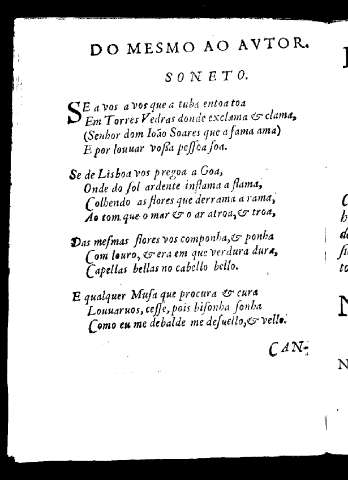 DO MESMO AO AVTOR.
SONETO.
SE a vos a vos que a tuba entoa toa
Em Torres Vedras donde exclama & clama,
(Senhor dom Ioão Soares que a fama ama)
E por louuar voſſa peſſoa ſoa.
Se de Lisboa vos pregoa a Goa,
Onde do ſol ardente inflama a flama,
Colhendo as flores que derrama a rama,
Ao tom que o mar & o ar atroa, & troa,
Das meſmas flores vos componha, & ponha
Com louro, & era em que verdura dura,
Capellas bellas no cabello bello.
E qualquer Muſa que procura & cura
Louuaruos, ceſſe, pois biſonha ſonha
Como eu me debalde me deſuello, & vello.
CAN-